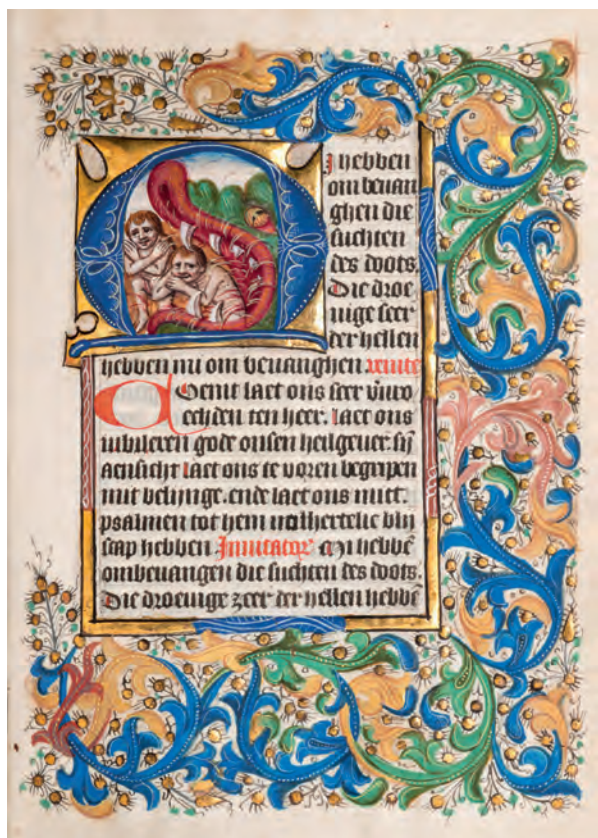 MI hebben
om beuan
ghen die
suchten
des doots.
Die droe
uige seer
der hellen
hebben mi om beuanghen venite
COemt laet ons seer v̄vro
echden ten heer. laet ons
iubileren gode onsen heilgeuer. sij̄
aensicht laet ons te voren begripen
mit belijnge. ende laet ons mitt.
psalmen tot hem blij
scap hebben Inuitator Mi hebbē
ombeuangen die suchten des doots.
Die droeuige zeer der hellen hebbē